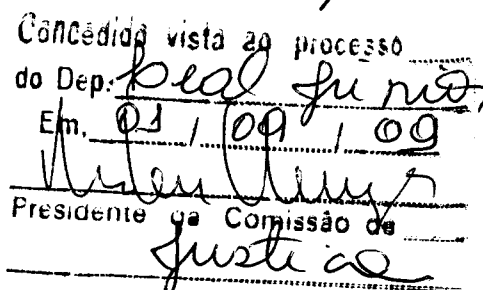 Concedido vista ao processo
do Dep. Leal Junior,
Em, 01 / 09 / 09
Presidente da Comissão de
Justiça